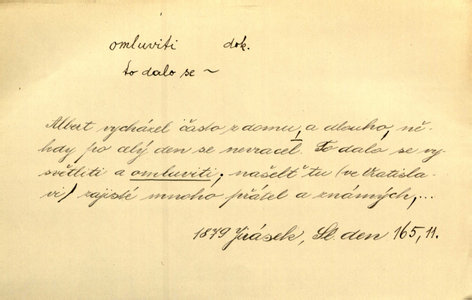 omluviti dok.
to dalo se ~
Albert vycházel často z domu, a dlouho, ně-
kdy po celý den se nevracel. To dalo se vy-
světliti a omluviti, našelť tu (ve Vratisla-
vi) zajisté mnoho přátel a známých,...
1879 Jirásek, Sl. den 165, 11.